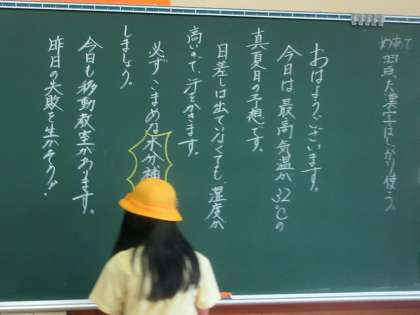 めあて
習った漢字はしっかり使う。
おはようございます。
今日は最高気温が32℃の
真夏日の予想です。
日差しは出ていなくても、湿度が
高いので、汗をかきます。
必ずこまめな水分補
しましょう。
今日も移動教室があります。
昨日の失敗を生かそうが!